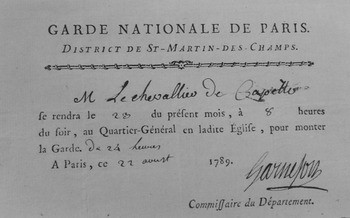 GARDE NATIONALE DE PARIS.
DISTRICT DE ST-MARTIN-DES-CHAMPS.
M Le chevallier de
se rendra le 23 du présent mois, à 8 heures
du soir, au Quartier-Général en ladite Eglise, pour monter
la Garde. de 24 heures
A Paris, ce 22 aoust 1789.
Commissaire du Département.